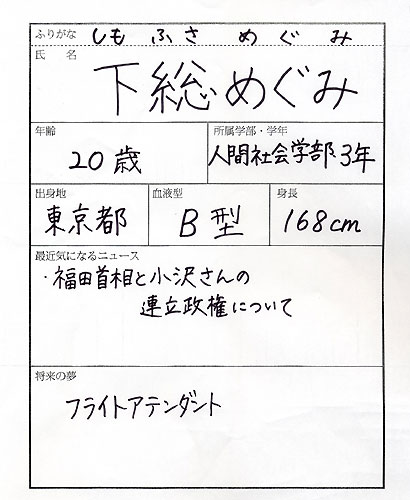 ふりがな しもふさ めぐみ
氏 名
下総めぐみ
年齢 所属学部・学年
20歳 人間社会学部3年
出身地 血液型 身長
東京都 B型 168cm
最近気になるニュース
・福田首相と小沢さんの
連立政権について
将来の夢
フライトアテンダント